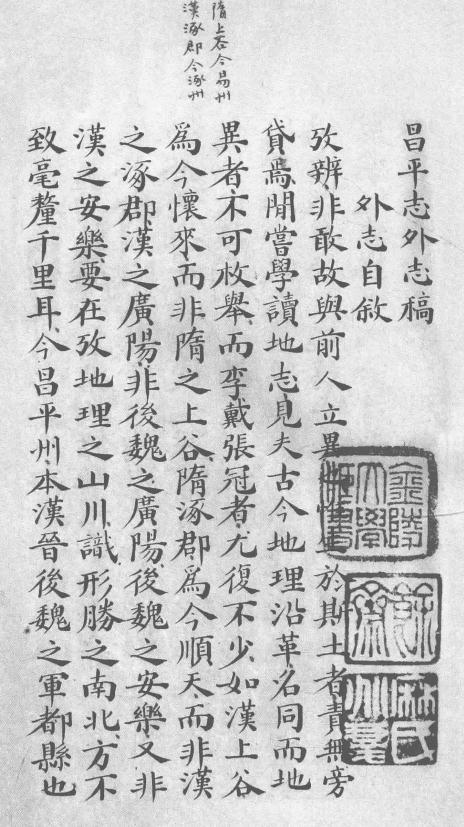 隋上谷今易州
漢涿郡今涿州
昌平志外志稿
外志自敘
攷辨非敢故與前人立異惟生於斯土者責無旁
貸焉閒嘗學讀地志見夫古今地理沿革名同而地
異者不可枚舉而李戴張冠者尤復不少如漢上谷
爲今懷來而非隋之上谷隋涿郡爲今順天而非漢
之涿郡漢之廣陽非後魏之廣陽後魏之安樂又非
漢之安樂要在攷地理之山川識形勝之南北方不
致毫釐千里耳今昌平州本漢晉後魏之軍都縣也
金陵
大學
藏書